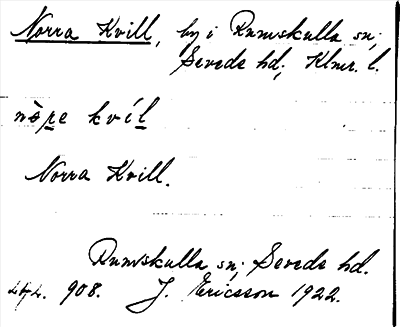 Norra Kvill, by i Rumskulla sn;
Sevede hd; Klmr. l.
nòre kvíl
Norra Kvill.
Rumskulla sn; Sevede hd.
908. J. Ericsson 1922.